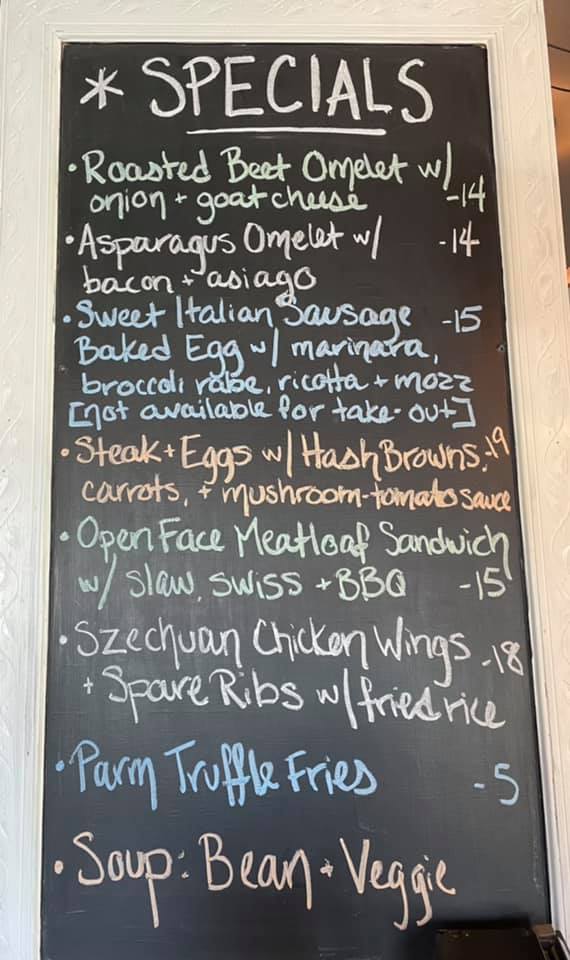 * SPECIALS
• Roasted Beet Omelet w/
onion + goat cheese -14
• Asparagus Omelet w/ -14
bacon + asiago
• Sweet Italian Sausage -15
Baked Egg w/ marinara,
broccoli rabe, ricotta + mozz
[not available for take-out]
• Steak + Eggs w/ Hash Browns, -19
carrots, + mushroom-tomato sauce
• Open Face Meatloaf Sandwich
w/ slaw, swiss + BBQ -15
• Szechuan Chicken Wings -18
+ Spare Ribs w/ fried rice
• Parm Truffle Fries -5
• Soup: Bean + Veggie